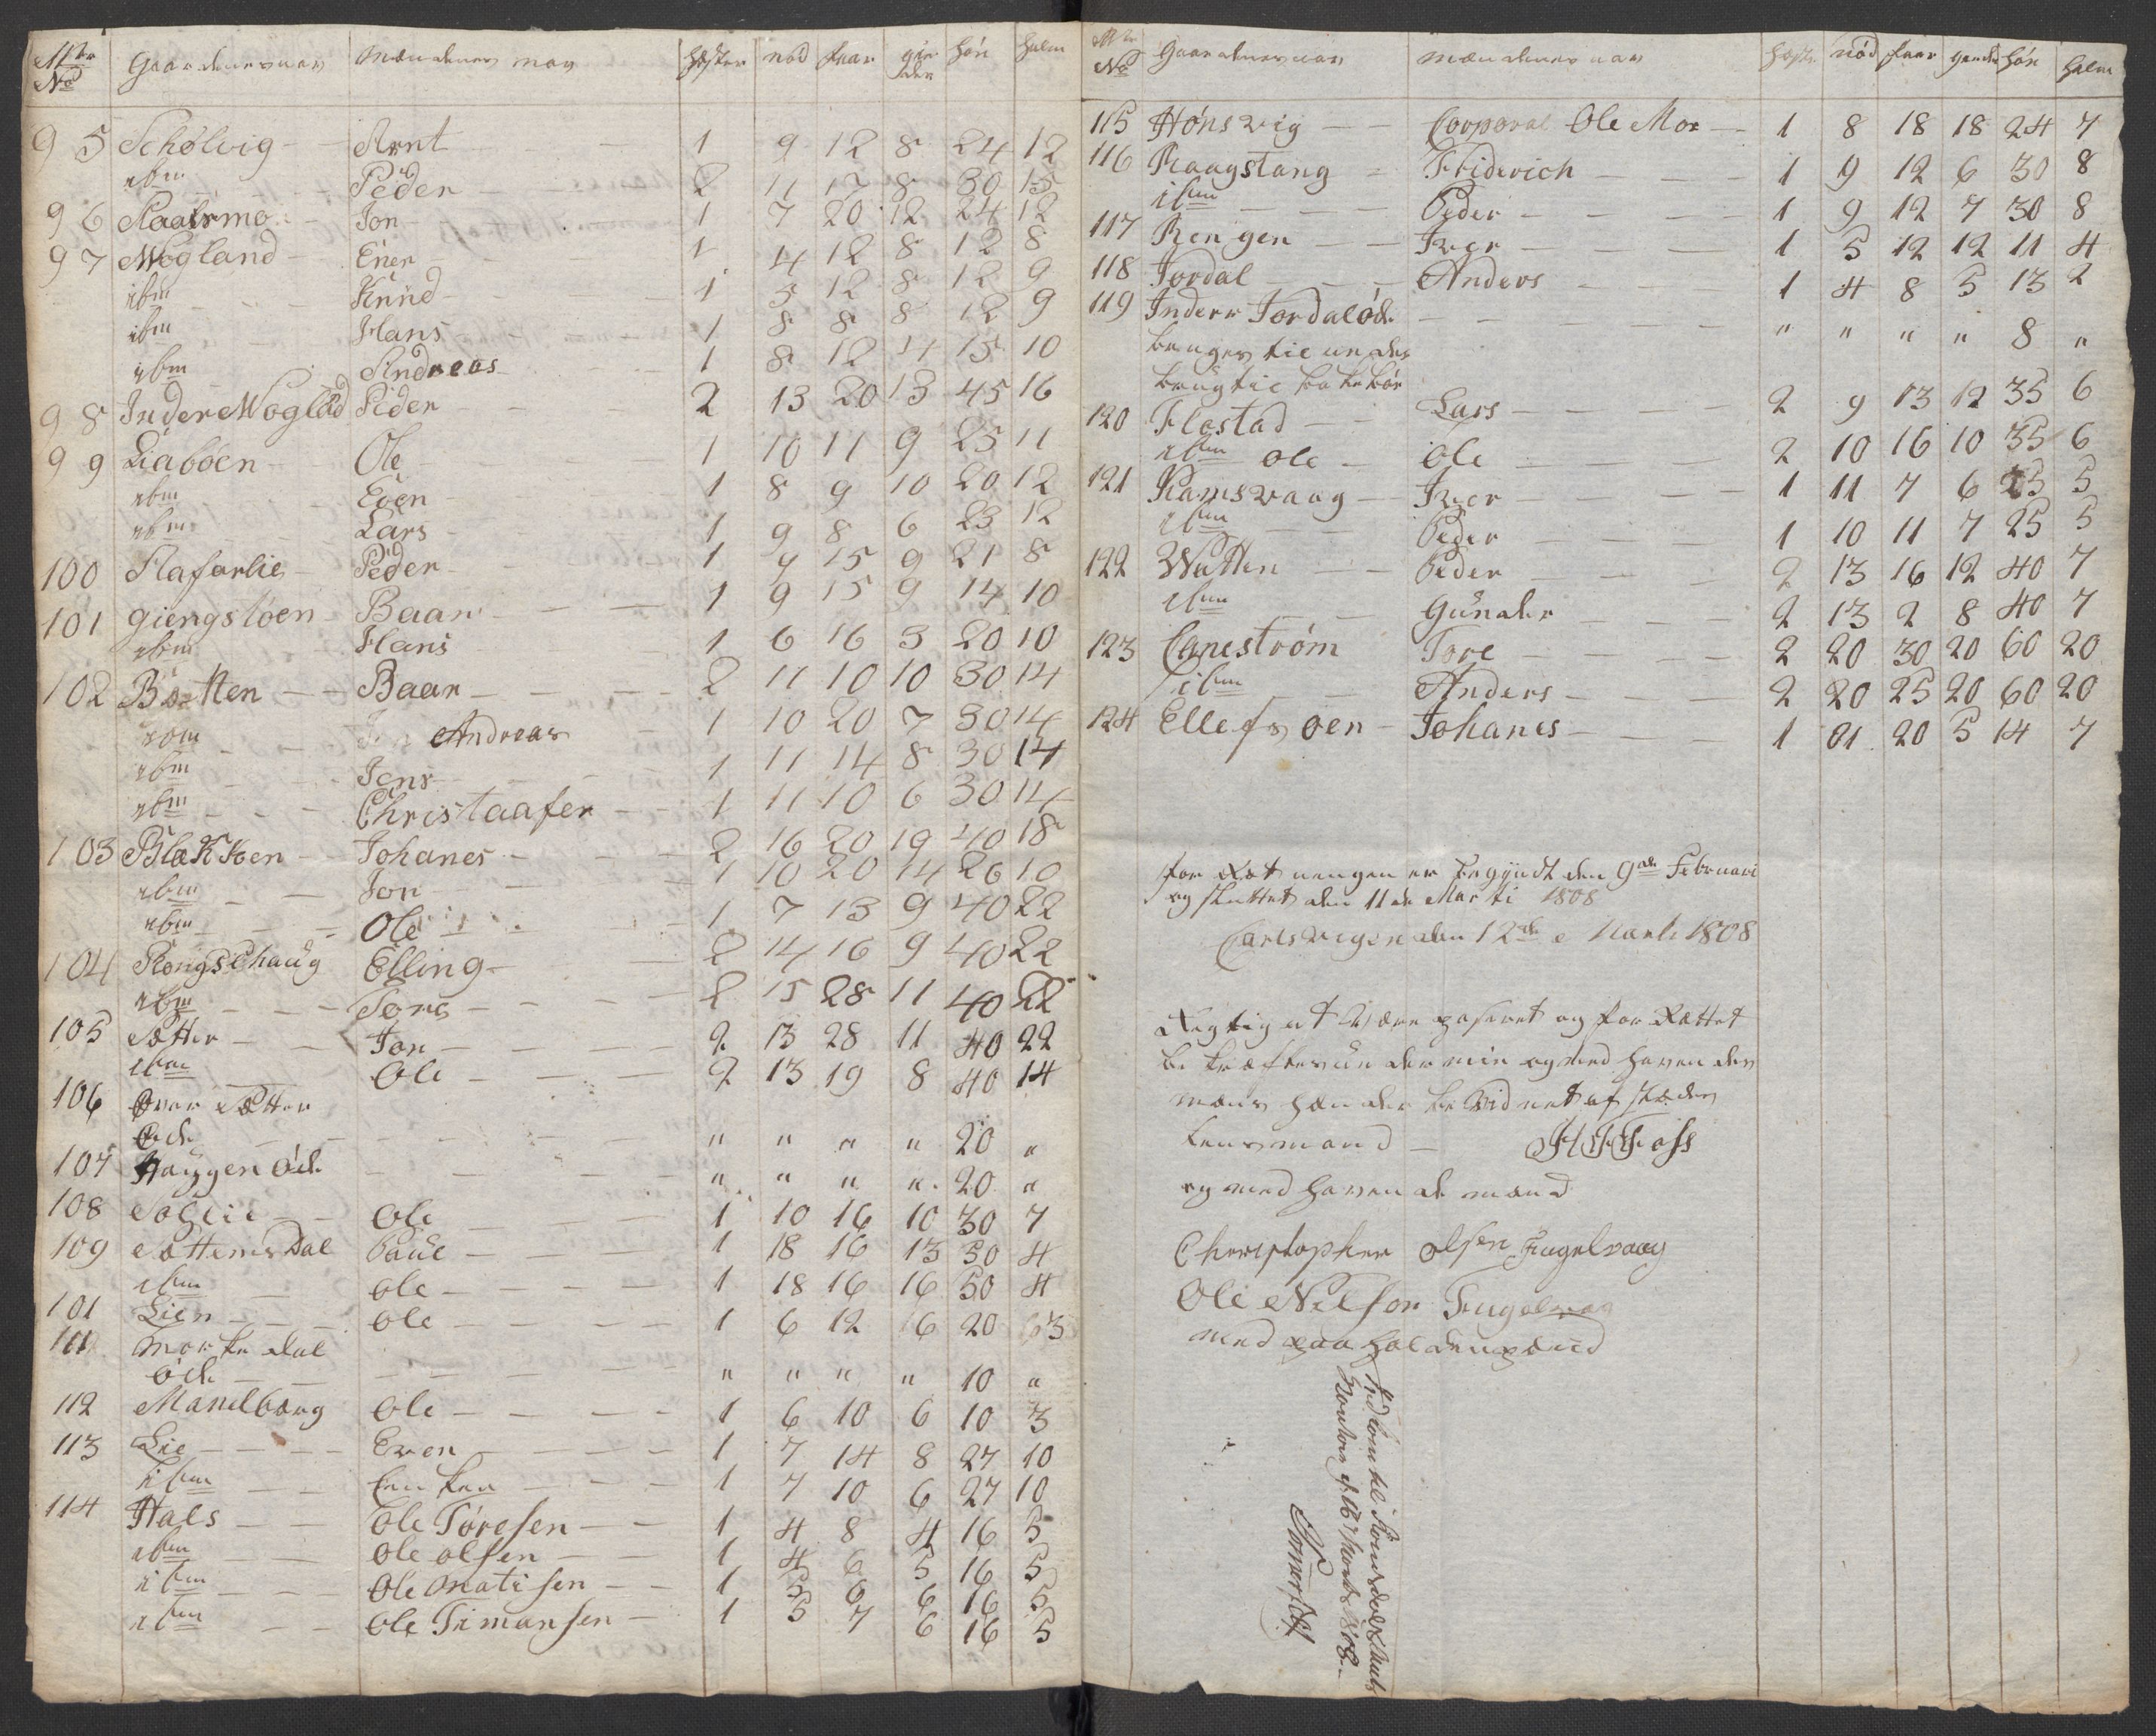 Mtr No Gaardenes nav Mændenes nav Hæster nöd faar gieder höe halm
95 Schølvig Arnt 1 9 12 8 24 12
ibm Peder 2 11 17 8 30 15
96 Raalrmo Jon 1 7 20 12 24 12
97 Wogland Ener 1 4 12 8 12 8
ibm Knud 1 5 12 8 12 9
ibm Hans 1 8 8 8 12 9
ibm Andreas 1 8 12 4 15 10
98 Inder Woglad Peder 2 13 20 13 45 16
99 Liabøen Ole 1 10 11 9 25 11
ibm Even 1 8 9 10 20 12
ibm Lars 1 9 8 6 23 12
100 Slafarlie Peder 1 4 15 9 21 8
101 giengstøen Baar 1 9 15 9 14 10
ibm Hans 1 6 16 3 20 10
102 Botten Baar 2 11 10 10 30 14
ibm Andreas 1 10 20 7 30 14
ibm Jens 1 11 14 8 30 14
ibm Christaafer 1 11 10 6 30 14
103 Blakstoen Johanes 2 16 20 19 40 18
ibm Jon 1 10 20 14 26 10
ibm Ole 1 7 13 9 40 22
104 Kongschaug Elling 2 14 16 9 40 22
ibm Tore 2 15 28 11 40 22
105 Sætter Jon 2 13 28 11 40 22
ibm Ole 2 13 19 8 40 14
106 Over Sætter
Öde " " " " 20 "
107 Hauggen Öde " " " " 20 "
108 Sollie Ole 1 10 16 10 30 7
109 Sættemsdal Paul 1 18 16 13 50 4
ibm ole 1 18 16 16 50 4
101 Lien ole 1 6 12 6 20 3
111 Morke dal
öde " " " " 10 "
112 Manelbærg Ole 1 6 10 6 10 3
113 Lie Even 1 7 14 8 27 10
ibm Enken 1 7 10 6 27 10
114 Hals Ole Töresen 1 4 8 4 16 5
ibm Ole olsen 1 4 6 5 16 5
ibm Ole Matisen 1 5 6 6 16 5
ibm Ole Timansen 1 5 7 6 16 5
Mtr No Gaardenes nav mændenes nav Hæst nöd faar geeder höe halm
115 Hönsvig Corporal Ole Moe 1 8 18 18 24 7
116 Raagstang Friderich 1 9 12 6 30 8
ibm Peder 1 9 12 7 30 8
117 Rengen Iver 1 5 12 12 11 4
118 Jordal Anders 1 4 8 5 13 2
119 Inderr Jordal öde " " " " 8 "
bruges til under
brugtil
120 Flostad Lars 2 9 13 12 35 6
ibm ole Ole 2 10 16 10 35 6
121 Ramsvaag Iver 1 11 7 6 25 5
ibm Peder 1 10 11 7 25 5
122 Watten Peder 2 13 16 12 40 7
ibm Gunder 2 13 2 8 40 7
123 Caneström Tore 2 20 30 20 60 20
ibm Anders 2 20 25 20 60 20
124 Ellefsoen Johanes 1 01 20 5 14 7
forrætnengen er begyndt den 9de Februari
og sluttet den 11de Marti 1808
Carlsvigen den 12de Marti 1808
Regtig at være paseret og forrættet
bekræftes under min og med havendes
mæns hænder bevidnet af stedes
Lensmand H F Foss
og med havende mænd
Cheristopher olsen Fugelvaag
Ole Nilsen Fugelvag
med paa holden pænd
Indkom til Romsdals Amts
Contoir d. 16 Marts 1808.
Sommerfeldt